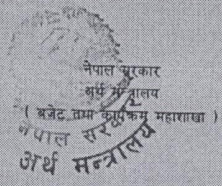 नेपाल सरकार
अर्थ मन्त्रालय
( बजेट तथा कार्यक्रम महाशाखा )
नेपाल सरकार
अर्थ मन्त्रालय